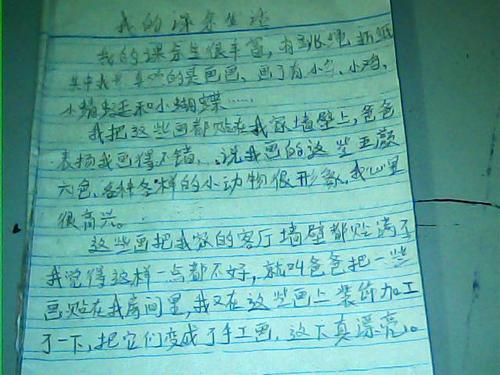 我的课余生活
我的课余生很丰富，有跳绳，折纸
其中我最喜欢的是画画，画了有小鸟、小鸡、
小蜻蜓和小蝴蝶……
我把这些画都贴在我家墙壁上，爸爸
表扬我画得不错，说我画的这些五颜
六色、各种各样的小动物很形象，我心里
很高兴。
这些画把我家的客厅墙壁都贴满了
我觉得这样一点都不好，就叫爸爸把一些
画贴在我房间里，我又在这些画上装饰加工
了一下，把它们变成了手工画，这下真漂亮。